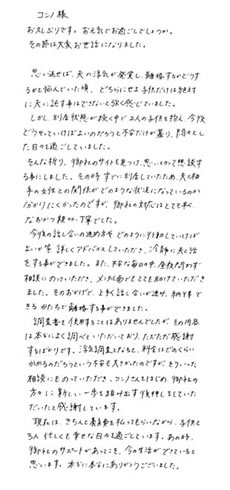 コンノ様
お久しぶりです。お元気でお過ごしでしょうか。
その節は大変お世話になりました。
思い返せば、夫の浮気が発覚し、離婚するかどうするかと悩んでいた頃、どちらにせよ子供だけは絶対に夫に託す事はできないと強く感じていました。
しかし、別居状態が続く中で2人の子供を抱え、今後どうやっていけばよいのだろうと不安だけが募り、悶々とした日々を過ごしていました。
そんな折り、御社のサイトを見つけ、思いきって相談する事にしました。その時すでに別居していたため、夫と相手の女性との関係がどのような状況になっているのか分かりにくかったのですが、御社の対応はとても早く、なおかつ親切、丁寧でした。
今後の話し合いの進め方やどのように行動していけばよいか等、詳しくアドバイスしていただき、冷静に夫と話をする事ができました。また、不安な毎日の中、昼夜問わず相談にのっていただき、メンタル面でもとても助けていただきました。そのおかげで、上手く話し合いが進み、納得できるかたちで離婚する事ができました。
調査書を使用することはありませんでしたが、その内容は本当によく調べていただいており、ただただ感謝するばかりです。浮気調査となると、料金はどのくらいかかるのだろうという不安も大きかったのですが、きちんと相談にものっていただき、コンノさんをはじめ、御社の方々に新しい一歩を踏み出す後押しをしていただいたと感謝しています。
現在は、きちんと養育費も払ってもらいながら、子供と3人忙しくも幸せな日々を過ごしています。あの時、御社のサポートがあってこそ、今の生活ができていると思います。本当に本当にありがとうございました。